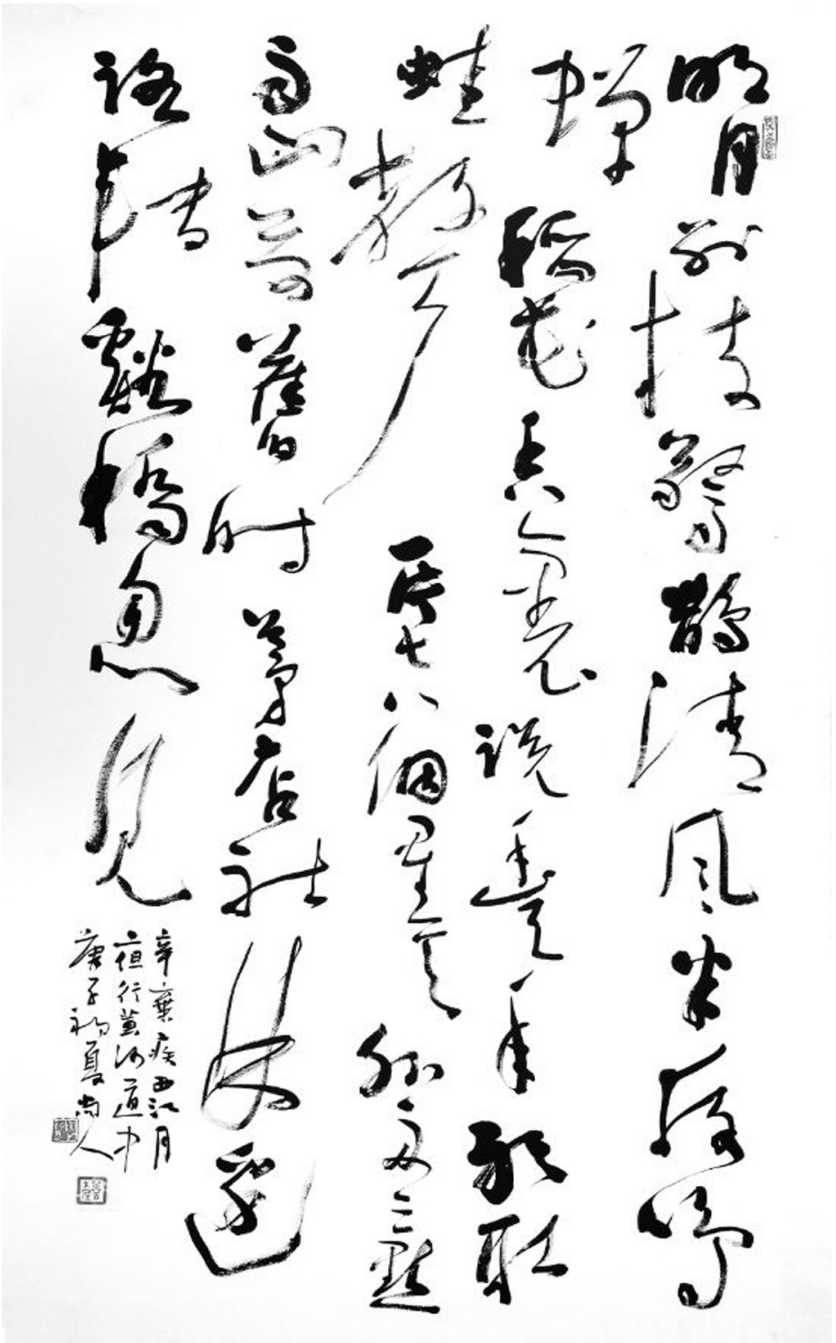 明月別枝驚鵲清風半夜鳴
蟬稻花香裏說豐年聽取
蛙聲一片七八個星天外兩三點
雨山前舊时茅店社林邊
路轉谿橋忽見
辛棄疾西江月
亱行黃沙道中
庚子初夏尚人